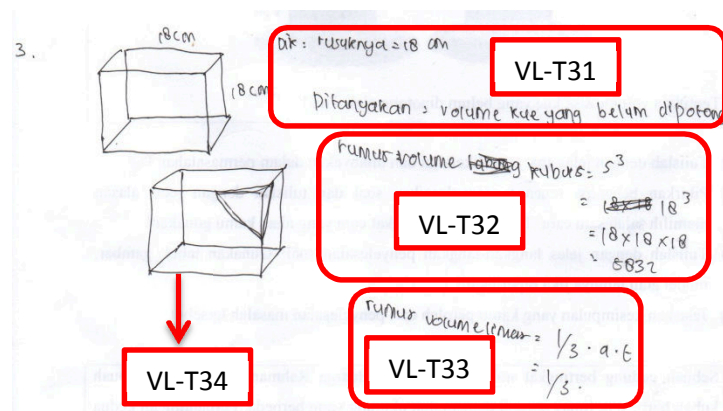 3.
18cm
18cm
Dik : rusuknya = 18 cm
VL-T31
Ditanyakan : volume kue yang belum dipoton
rumus volume kubus = s³
= 18³
= 18 x 18 x 18
= 5832
VL-T32
rumus volume limas = 1/3 · a · t
= 1/3 ·
VL-T33
VL-T34